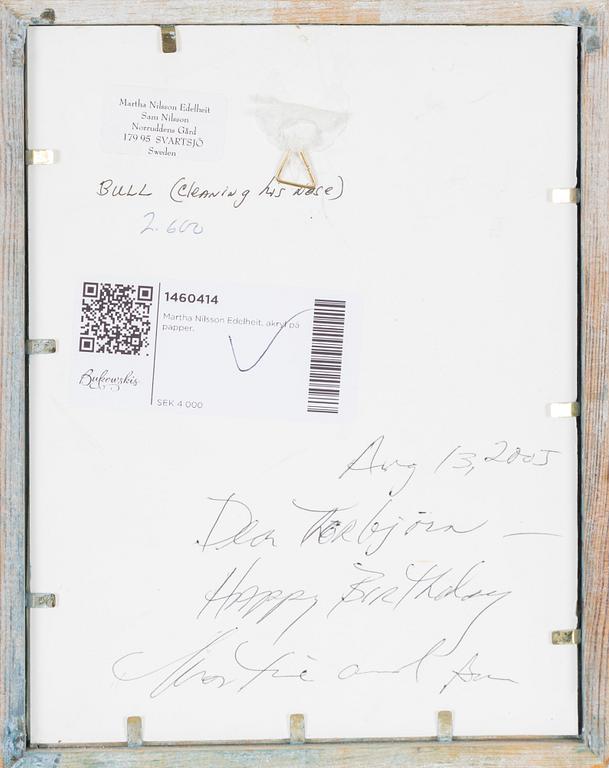 Martha Nilsson Edelheit
Sam Nilsson
Norruddens Gård
179 95 SVARTSJÖ
Sweden
BULL (Cleaning his nose)
2.600
1460414
Martha Nilsson Edelheit, akryl på
papper.
Bukowskis
SEK 4 000
Aug 13, 2005
Dear Torbjörn —
Happy Birthday
and Sam